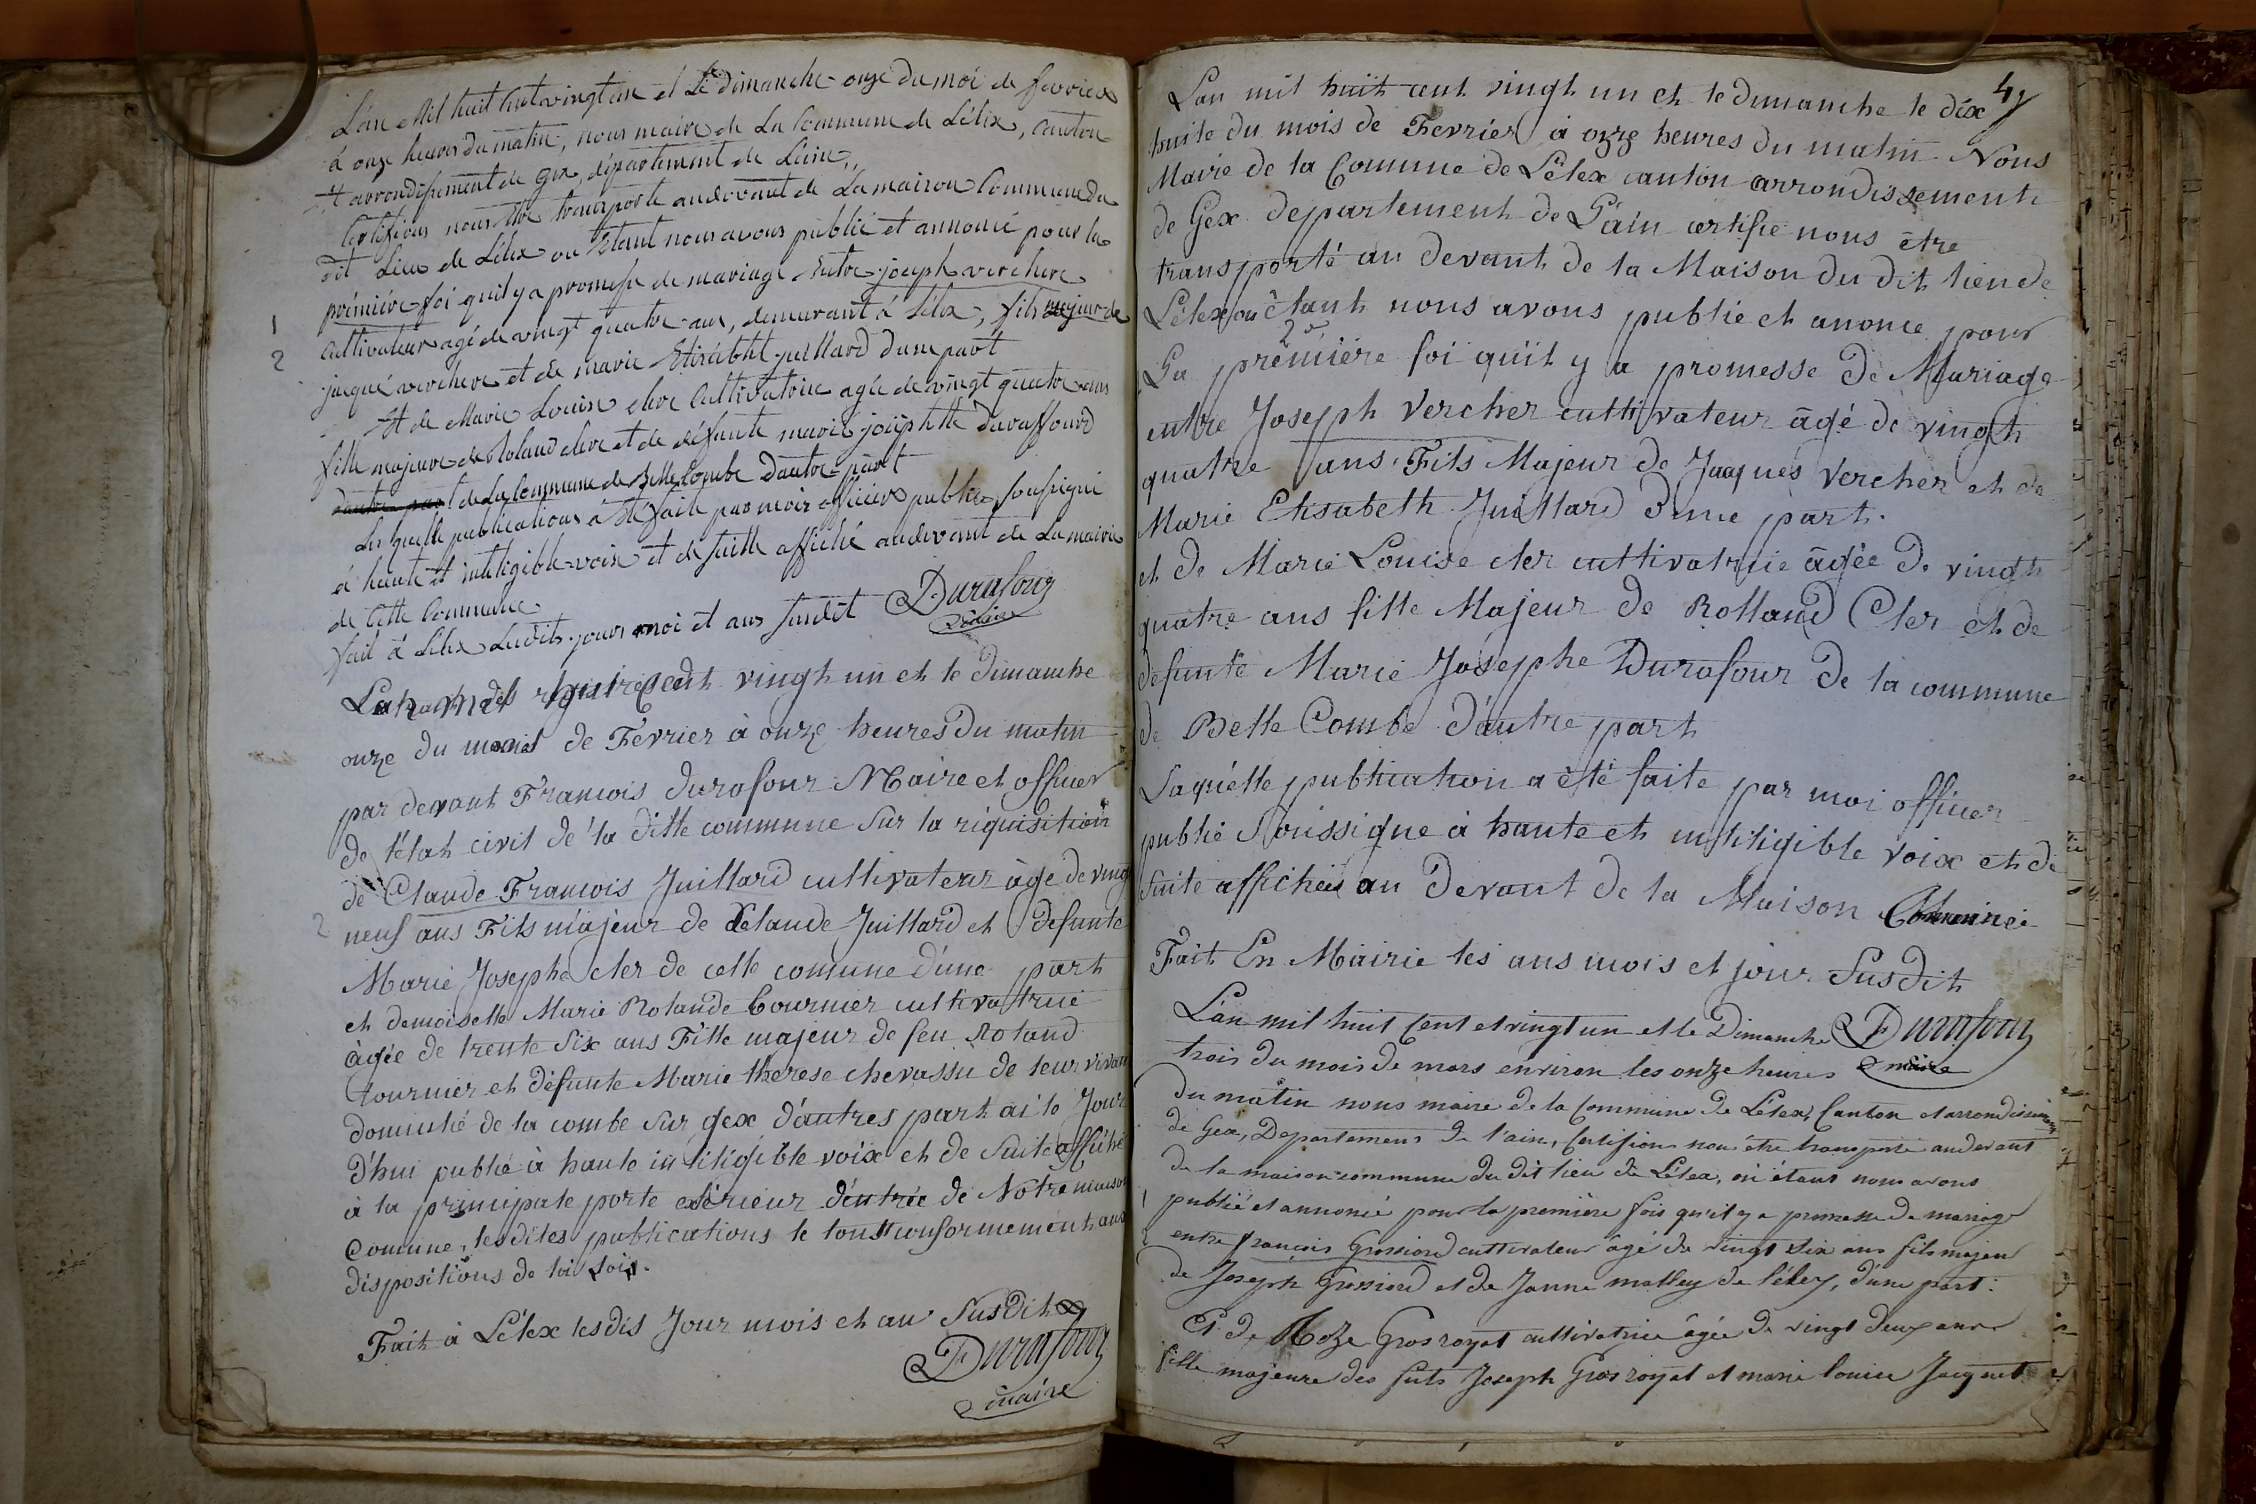 L'an Mil huit Cent vingt un et Le dimanche onze du moi de fevrier
à onze heures du matin, nous maire de La Commune de Lélix, canton
et arrondissement de Gex, département de Lain,,
Certifions nous être transporté audevant de La maison Commune du
dit Lieu de Lélix ou Etant nous avons publié et annoncé pour la
prémiére foi quil y a promesse de mariage Entre joseph verchere
1
Cultivateur agé de vingt quatre ans, demeurant à Lélix, fils majeur de
2
jaque verchere et de marie Elisabeht juillard dune part
Et de Marie Louise clere Cultivatrice agée de vingt quatre ans
fille majeure de Roland clere et de défunte marie josephte duraffourd
dautre part de La Commune de Belle Combe Dautre part
La quelle publications à Eté faite par moi officier public soussigné
à haute et inteligible voix et de suitte affiché audevant de La mairie
de Cette Commune.
fait à Lélix Ledits jour moi et ans susdit Durafour
maire
huit Cent vingt un et le dimanche
onze du mois de Fevrier à onze heures du matin
par devant Francois durafour Maire et officier
de l'état civil de la ditte commune sur la réquisition
de Claude Francois Juillard cultivateur àgé de ving
2
neuf ans Fils majeur de Claude Juillard et defunte
Marie Josephe cler de cette comune d'une part
et demoiselle Marie Rolande tournier cultivatrice
àgée de trente Six ans Fille majeur de feu Roland
tournier et défunte Marie therese chevassu de leur vivan
domicilié de la combe sur gex d'autres part ai le Jour
d'hui publié à haute intiligible voix et de suite affiché
à la principale porte exterieur d'entrée de Notre maison
Comune, lesdites publications le tout conformement aux
dispositions de loi
Fait à Lélex lesdis Jour mois et an Susdit
Durafour
maire
L'an mil huit cent vingt un et le dimanche le dix
huite du mois de Fevrier à onze heures du matin Nous
Maire de la Comune de Lélex canton arrondissement
de Gex departement de L'ain certifie nous être
transporté au devant de la Maison du dit lieu de
Lélex ou étant nous avons publié et anonce pour
2e
La premiére foi qu'il y a promesse de Mariage
entre Joseph Vercher cultivateur âgé de vingt
quatre ans Fils Majeur de Jaques Vercher et de
Marie Elisabeth Juillard d'une part.
et de Marie Louise cler cultivatrice âgée de vingt
quatre ans fille Majeur de Rolland Cler et de
defunte Marie Josephe Durafour de la commune
de Belle Combe d'autre part
Laquelle publication a été faite par moi officier
public Soussigne à haute et intiligible voix et de
Suite affichée au devant de la Maison
Fait En Mairie les ans mois et jour Susdit
L'an mil huit cent et vingt un et le Dimanche Durafour
trois du mois de mars environ les onze heures maire
du matin nous maire de la Commune de Lélex, Canton et arrondissement
de Gex, Departement de l'ain, certifions nous être transporté audevant
de la maison commune du dit lieu de Lélex, où étant nous avons
1
publié et annoncé pour la première fois qu'il y a promesse de mariage
2
entre françois Grossiord cultivateur âgé de vingt six ans fils majeur
de Joseph Grossiord et de Janne mathey de lélex, d'une part:
Et de Roze Grosroyat cultivatrice âgée de vingt deux ans
fille majeure des futs Joseph Grosroyat et marie louise Jacquet